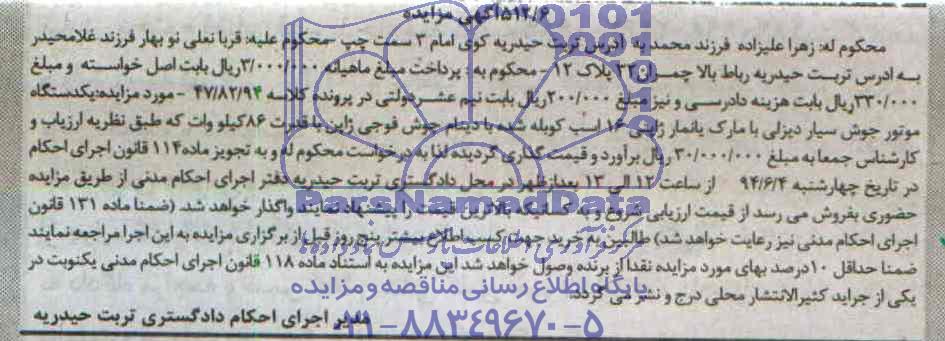 ۵۱۲/۶آگهی مزایده
محکوم له: زهرا علیزاده فرزند محمد به آدرس تربت حیدریه کوی امام ۳ سمت چپ -محکوم علیه: قربانعلی نو بهار فرزند غلامحیدر
به ادرس تربت حیدریه رباط بالا چمران ۲۲ پلاک ۱۲ - محکوم به : پرداخت مبلغ ماهیانه ۳/۰۰۰/۰۰۰ریال بابت اصل خواسته و مبلغ
۳۳۰/۰۰۰ریال بابت هزینه دادرسی و نیز مبلغ ۲۰۰/۰۰۰ریال بابت نیم عشردولتی در پرونده کلاسه ۴۷/۸۲/۹۴ - مورد مزایده:یکدستگاه
موتور جوش سیار دیزلی با مارک یانمار ژاپنی ۱۶ اسب کوپله شده با دینام جوش فوجی ژاپن با قدرت ۸۶کیلو وات که طبق نظریه ارزیاب و
کارشناس جمعا به مبلغ ۳۰/۰۰۰/۰۰۰ ریال برآورد و قیمت گذاری گردیده لذا به درخواست محکوم له و به تجویز ماده۱۱۴ قانون اجرای احکام
در تاریخ چهارشنبه ۹۴/۶/۴ از ساعت ۱۲ الی ۱۳ بعدازظهر در محل دادگستری تربت حیدریه دفتر اجرای احکام مدنی از طریق مزایده
حضوری بفروش می رسد از قیمت ارزیابی شروع و به کسانیکه بالاترین قیمت را پیشنهاد نمایند واگذار خواهد شد. (ضمنا ماده ۱۳۱ قانون
اجرای احکام مدنی نیز رعایت خواهد شد) طالبین به خرید جهت کسب اطلاع بیشتر پنج روز قبل از برگزاری مزایده به این اجرا مراجعه نمایند
ضمنا حداقل ۱۰درصد بهای مورد مزایده نقدا از برنده وصول خواهد شد این مزایده به استناد ماده ۱۱۸ قانون اجرای احکام مدنی یکنوبت در
یکی از جراید کثیرالانتشار محلی درج و نشر می گردد.
مدیر اجرای احکام دادگستری تربت حیدریه
0101
ParsNamadData
پایگاه اطلاع رسانی مناقصه و مزایده
۰۲۱-۸۸۳۴۹۶۷۰-۵